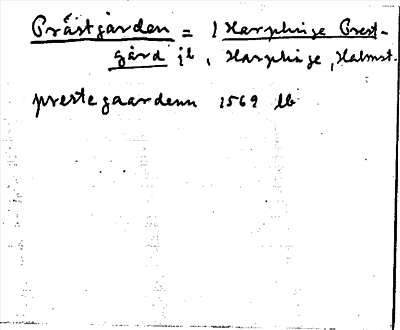 Prästgården = 1 Harplinge Prest-
gård jb, Harplinge, Halmst.
prestegaardenn 1569 lb